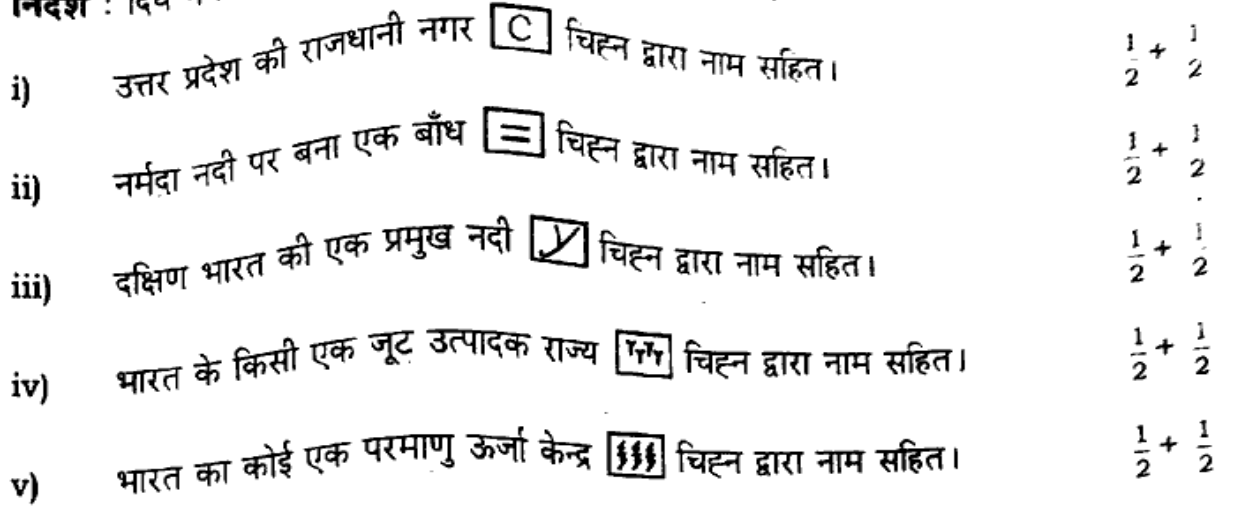 निर्देश :
i) उत्तर प्रदेश की राजधानी नगर C चिह्न द्वारा नाम सहित। 1/2 + 1/2
ii) नर्मदा नदी पर बना एक बाँध = चिह्न द्वारा नाम सहित। 1/2 + 1/2
iii) दक्षिण भारत की एक प्रमुख नदी y चिह्न द्वारा नाम सहित। 1/2 + 1/2
iv) भारत के किसी एक जूट उत्पादक राज्य चिह्न द्वारा नाम सहित। 1/2 + 1/2
v) भारत का कोई एक परमाणु ऊर्जा केन्द्र चिह्न द्वारा नाम सहित। 1/2 + 1/2